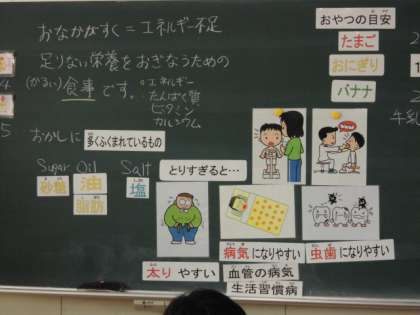 おなかがすく＝エネルギー不足
足りない栄養をおぎなうための
(かるい)食事です。
・エネルギー
・たんぱく質
・ビタミン
・カルシウム
おやつの目安
たまご
おにぎり
バナナ
牛乳
おかしに多くふくまれているもの
Sugar Oil Salt
砂糖 油 塩
脂肪
とりすぎると…
太りやすい
病気になりやすい
血管の病気
生活習慣病
虫歯になりやすい